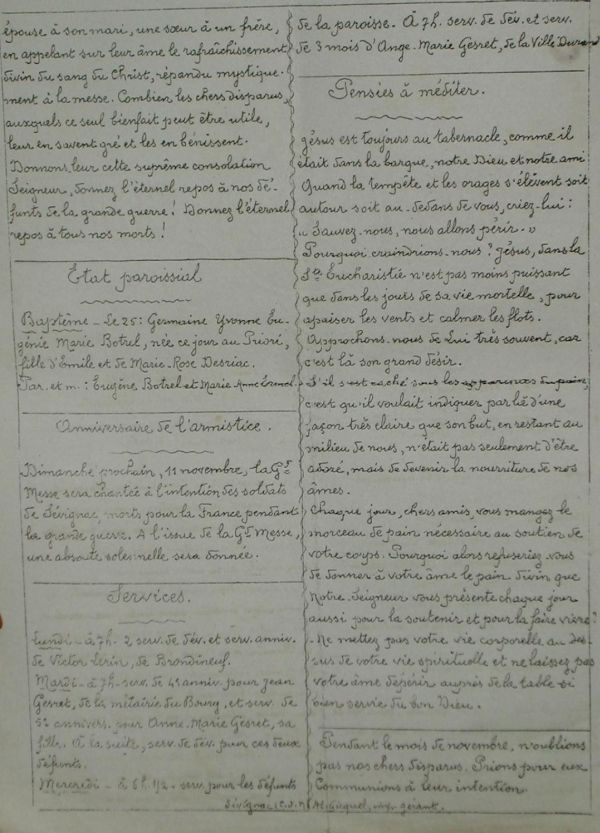 épouse à son mari, une sœur à un frère,
en appelant sur leur âme le rafraîchissement
divin du sang du Christ, répandu mystique-
ment à la messe. Combien les chers disparus,
auxquels ce seul bienfait peut être utile,
leur en savent gré et les en bénissent.
Donnons leur cette suprême consolation
Seigneur, donnez l'éternel repos à nos dé-
funts de la grande guerre! Donnez l'éternel
repos à tous nos morts!
Etat paroissial
Baptême - Le 25: Germaine Yvonne Eu-
génie Marie Botrel, née ce jour au Priori,
fille d'Emile et de Marie-Rose Desriac.
Par. et m: Eugène Botrel et Marie Anne
Anniversaire de l'armistice.
Dimanche prochain, 11 novembre, la Gde
Messe sera chantée à l'intention des soldats
de Sévignac, morts pour la France pendant
la grande guerre. A l'issue de la Gd Messe,
une absoute solennelle sera donnée.
Services.
Lundi - à 7h. 2 serv. de dév. et serv. anniv.
de Victor de Brondineuf.
Mardi - à 7h. serv. de 4e anniv. pour Jean
Gesret, de la métairie du Bourg, et serv. de
5e annivers. pour Anne-Marie Gesret, sa
fille. A la suite, serv. de dév. pour ces deux
défunts.
Mercredi - à 6h. 1/2. serv. pour les défunts
de la paroisse. A 7h. serv. de dév. et serv.
de 3 mois d'Ange-Marie Gesret, de la Ville Durand
Pensées à méditer.
Jésus est toujours au tabernacle, comme il
était dans la barque, notre Dieu et notre ami
Quand la tempête et les orages s'élèvent soit
autour soit au-dedans de vous, criez-lui:
« Sauvez-nous, nous allons périr. »
Pourquoi craindrions-nous? Jésus, dans la
Ste Eucharistie n'est pas moins puissant
que dans les jours de sa vie mortelle, pour
apaiser les vents et calmer les flots.
Approchons-nous de Lui très souvent, car
c'est là son grand désir.
S'il s'est caché sous les apparences du pain,
c'est qu'il voulait indiquer par là d'une
façon très claire que son but, en restant au
milieu de nous, n'était pas seulement d'être
adoré, mais de devenir la nourriture de nos
âmes.
Chaque jour, chers amis, vous mangez le
morceau de pain nécessaire au soutien de
votre corps. Pourquoi alors refuseriez-vous
de donner à votre âme le pain divin que
Notre Seigneur vous présente chaque jour
aussi pour la soutenir et pour la faire vivre?
Ne mettez pas votre vie corporelle au des-
sus de votre vie spirituelle et ne laissez pas
votre âme dépérir auprès de la table si
bien servie du bon Dieu.
Pendant le mois de novembre, n'oublions
pas nos chers disparus. Prions pour eux
Communions à leur intention.
Sévignac (C.d.N) gérant.